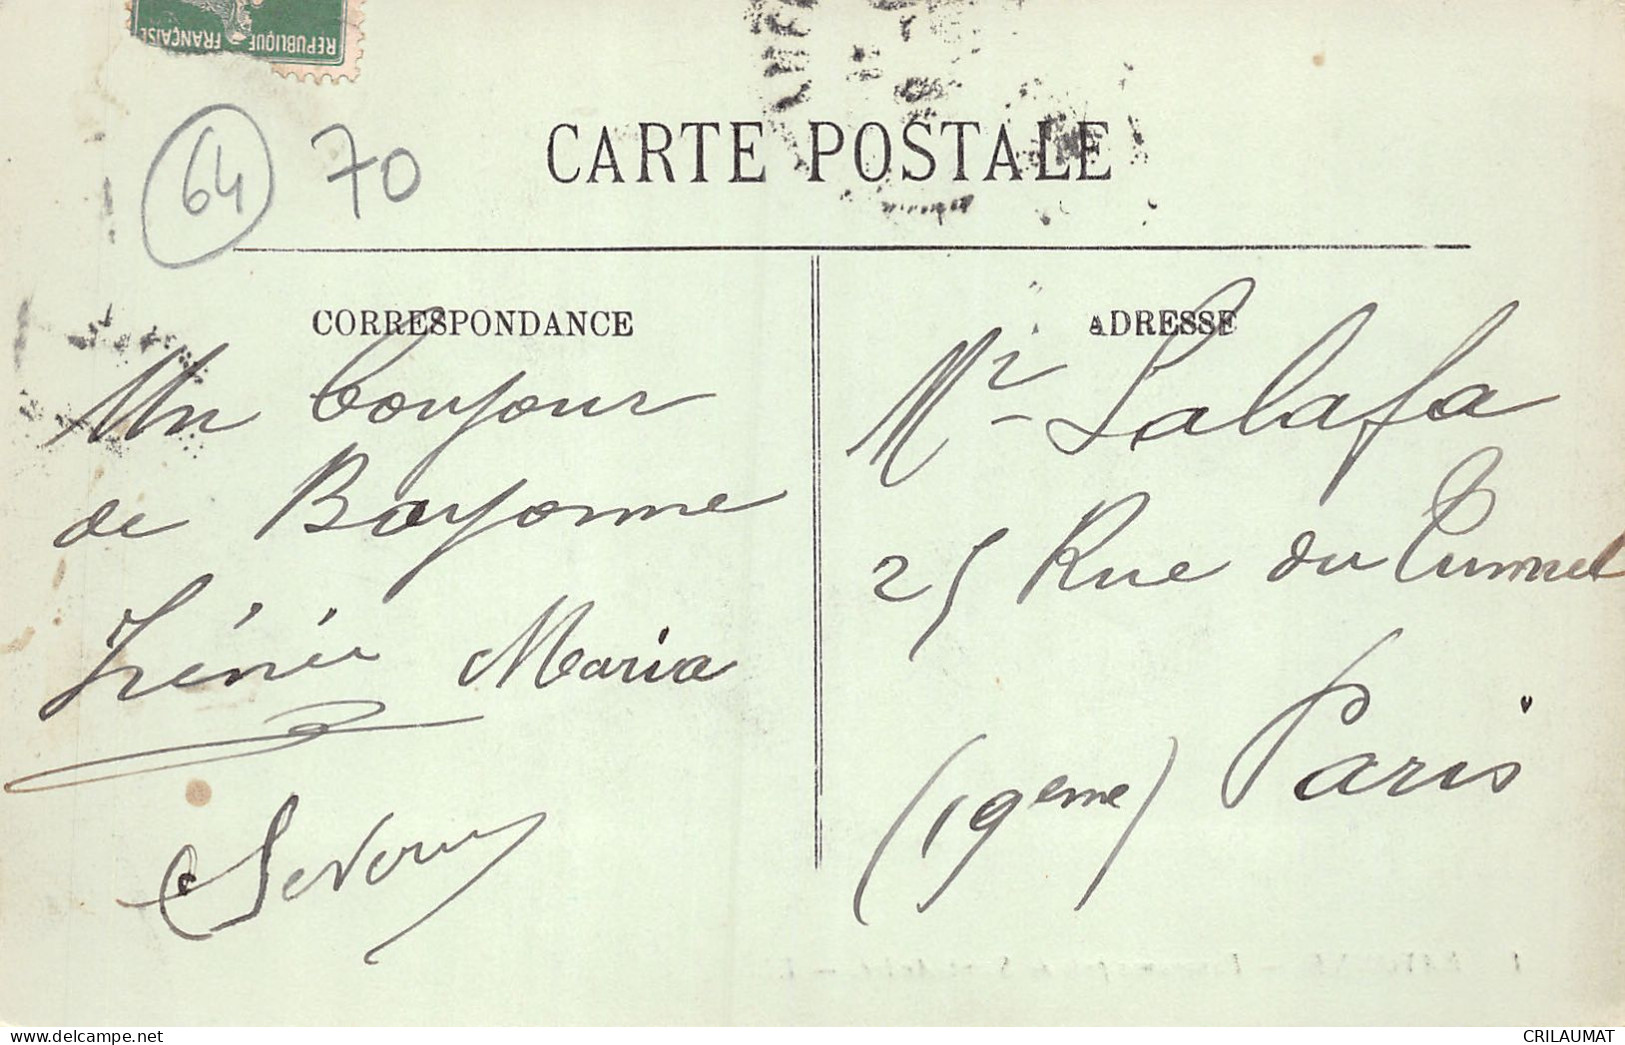 REPUBLIQUE FRANÇAISE
64 70
CARTE POSTALE
CORRESPONDANCE
Un bonjour
de Bayonne
Irénée Maria
ADRESSE
Mr Lalafa
25 Rue du Tunnel
Paris
(19eme)
CRILAUMAT